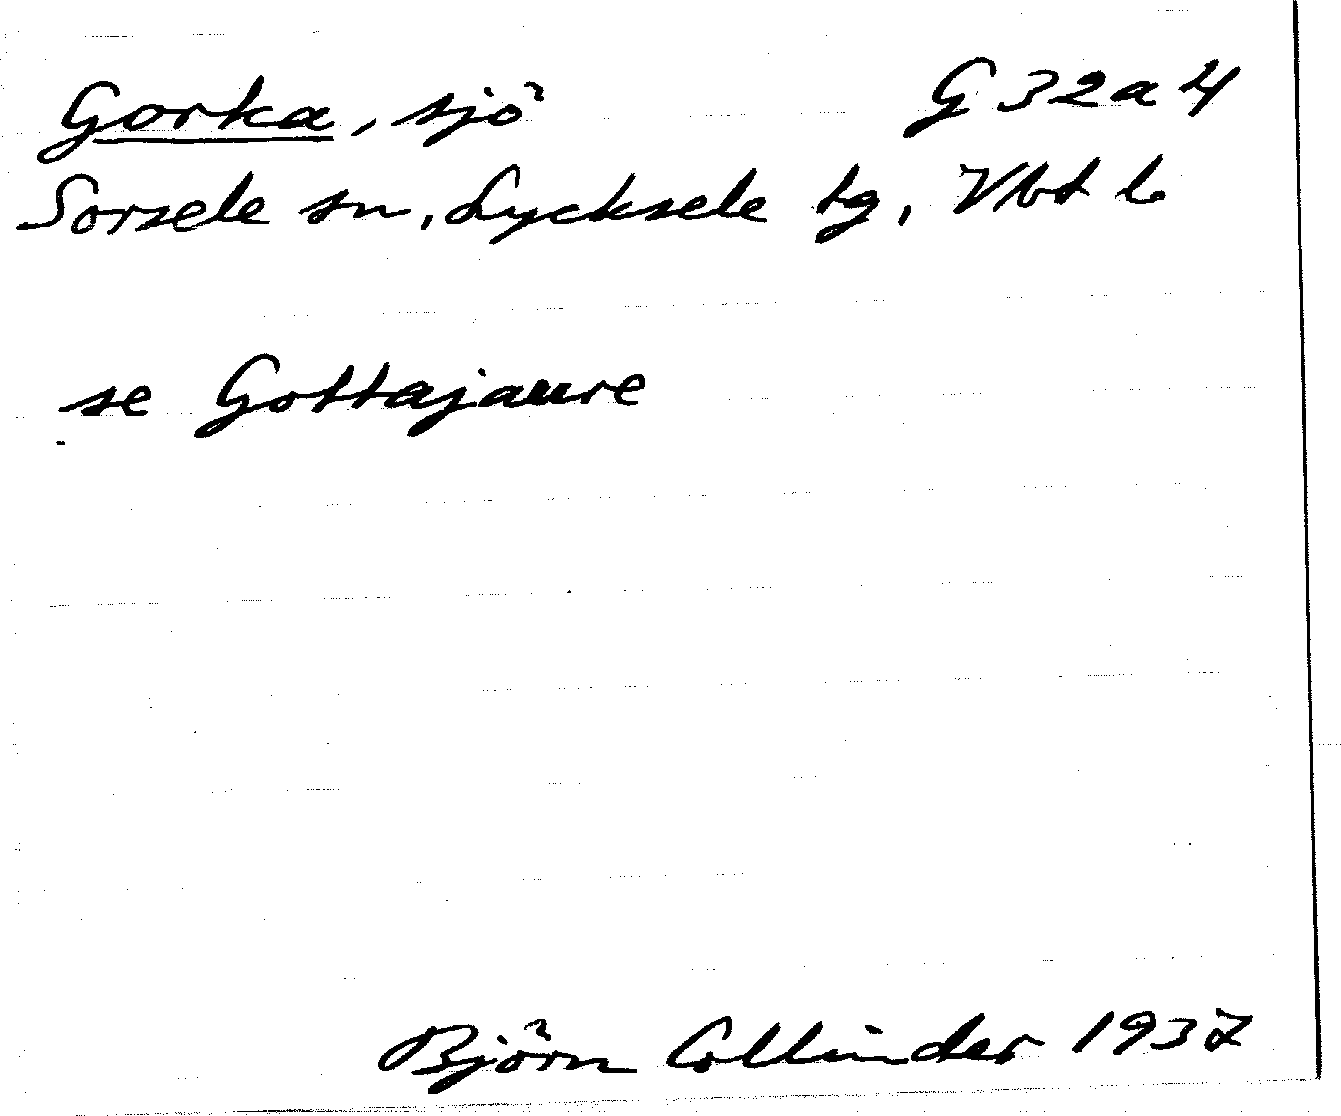 Gorka, sjö G 32 a 4
Sorsele sn, Lycksele tg, Vbt l.
se Gottajaure
Björn Collinder 1937